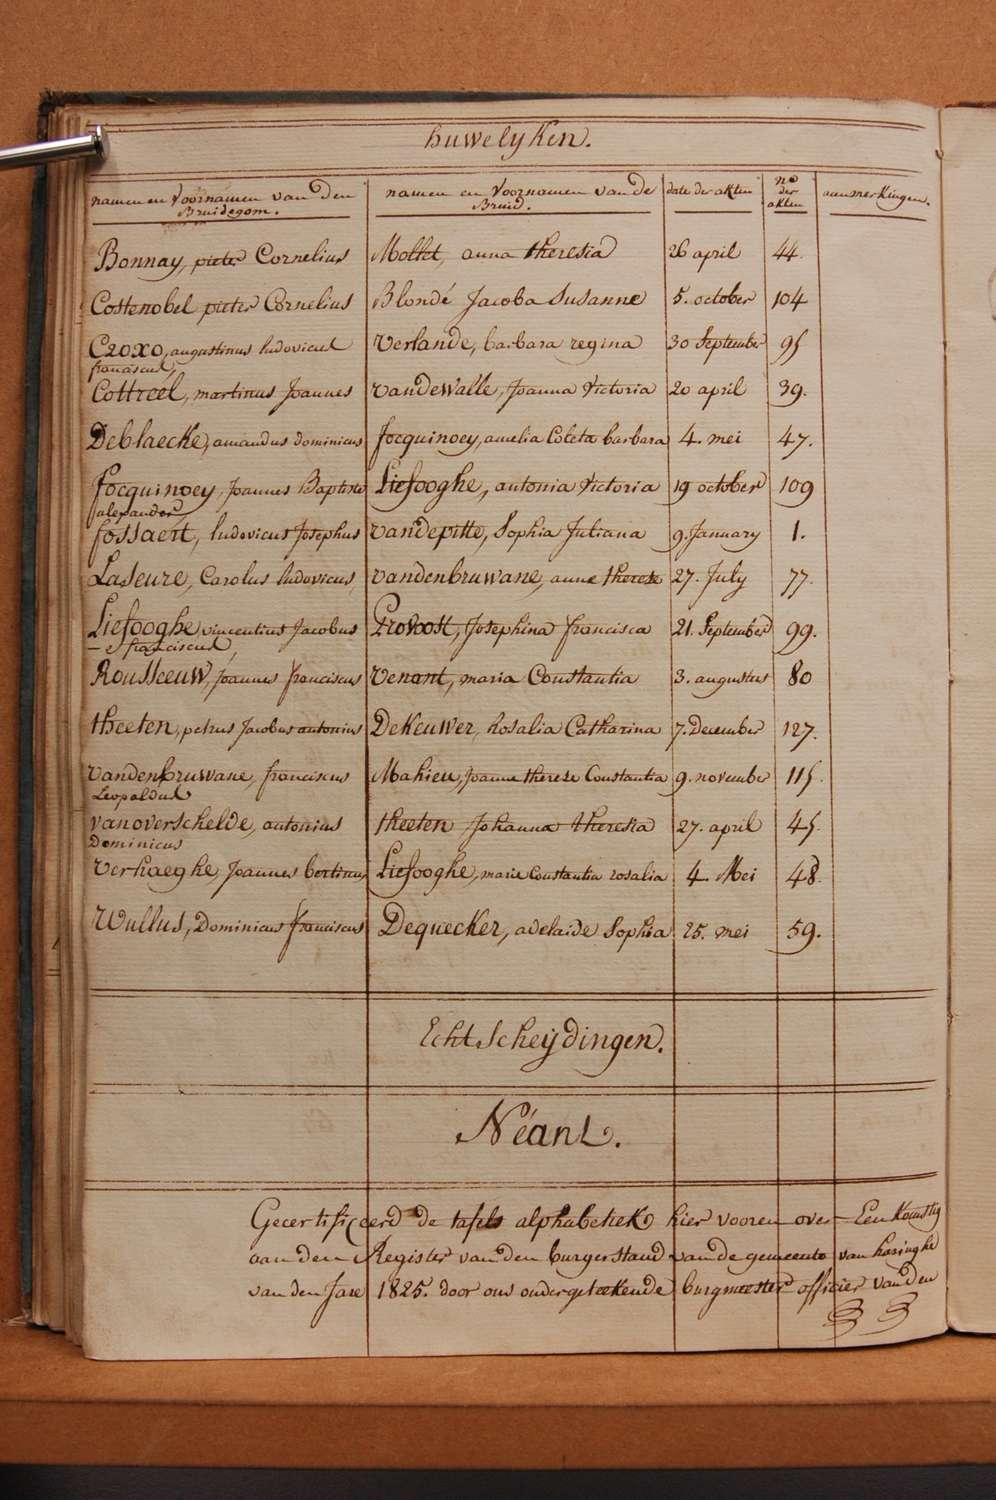 huwelyken.
namen en Voornamen van den Bruidegom. namen en Voornamen van de Bruid. date der akten no der akten aanmerkingen.
Bonnay, pieter Cornelius Mollet, anna theresia 26 april 44.
Costenobel pieter Cornelius Blondé Jacoba Susanne 5. october 104
Croxo, augustinus ludovicus franciscus, Verlande, barbara regina 30 September 95
Cottreel, martinus Joannes vandewalle, Joanna Victoria 20 april 39.
Deblaecke, amandus dominicus focquinoey, amelia Coleta barbara 4. mei 47.
focquinoey, Joannes Baptiste alexander Liefooghe, antonia Victoria 19 october 109
fossaert, ludovicus Josephus vandepitte, Sophia Juliana 9. January 1.
Laseure, Carolus ludovicus, vandenbruwane, anne therese 27. July 77.
Liefooghe, vincentius Jacobus franciscus, Provost, Josephina francisca 21. September 99.
Rousseeuw, Joannes franciscus Venant, maria Constantia 3. augustus 80
theeten, petrus Jacobus antonius DeKeuwer, Rosalia Catharina 7. December 127.
vandenbruwane, franciscus Leopoldus Mahieu, Joanne therese Constantia 9. november 115.
vanoverschelde, antonius Dominicus theeten Johanna theresia 27. april 45.
Verhaeghe, Joannes bertinus, Liefooghe, marie Constantia rosalia 4. Mei 48.
Wullus, Dominicus franciscus Dequecker, adelaide Sophia 25. mei 59.
Echtscheydingen.
Néant.
Gecertificeerd de tafels alphabetiek hier vooren over-Een komstig
aan den Register van den burgerstand van de gemeente van haringhe
van den Jare 1825. door ons ondergeteekende burgmeester officier van den